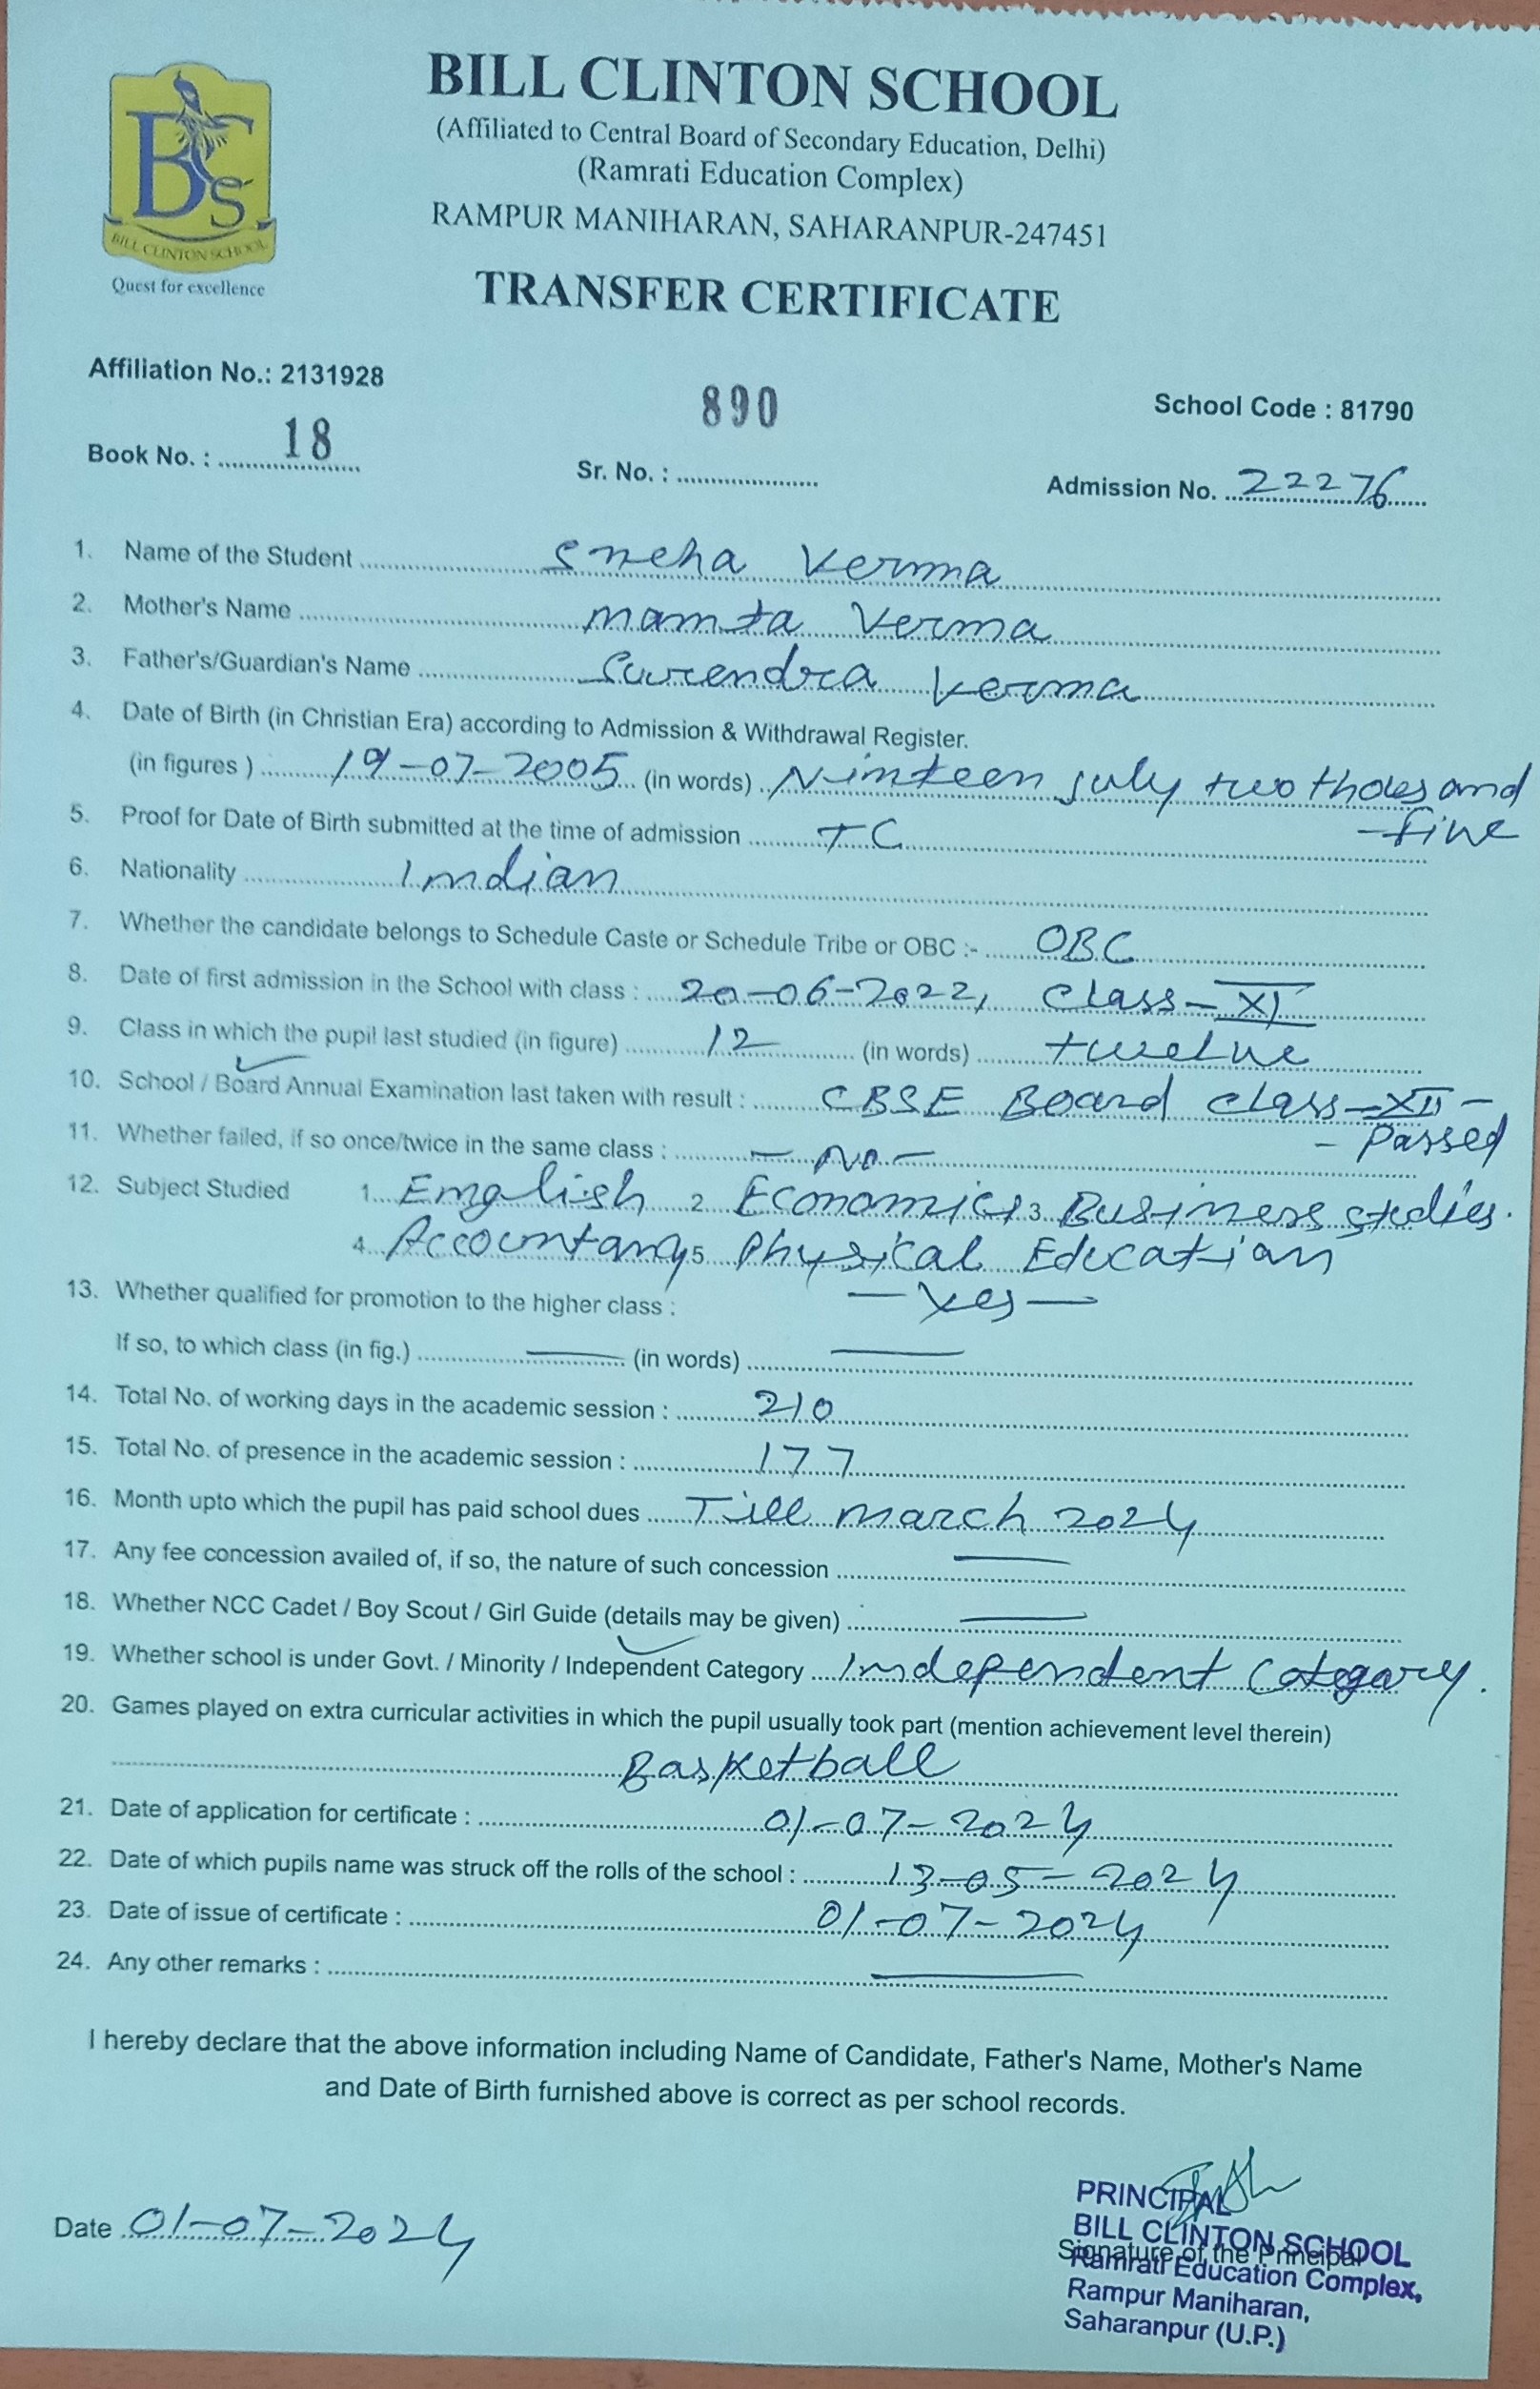 BILL CLINTON SCHOOL
(Affiliated to Central Board of Secondary Education, Delhi)
(Ramrati Education Complex)
RAMPUR MANIHARAN, SAHARANPUR-247451
BCS
BILL CLINTON SCHOOL
Quest for excellence
TRANSFER CERTIFICATE
Affiliation No.: 2131928
890
School Code : 81790
Book No. : 18
Sr. No. :
Admission No. 22276
1. Name of the Student Sneha Verma
2. Mother's Name Mamta Verma
3. Father's/Guardian's Name Surendra Verma
4. Date of Birth (in Christian Era) according to Admission & Withdrawal Register.
(in figures ) 19-07-2005 (in words) Ninteen july two thousand
-five
5. Proof for Date of Birth submitted at the time of admission TC
6. Nationality Indian
7. Whether the candidate belongs to Schedule Caste or Schedule Tribe or OBC :- OBC
8. Date of first admission in the School with class : 20-06-2022, Class-XI
9. Class in which the pupil last studied (in figure) 12 (in words) twelve
10. School / Board Annual Examination last taken with result : CBSE Board Class-XII-
- Passed
11. Whether failed, if so once/twice in the same class : - No -
12. Subject Studied 1. English 2. Economics 3. Business studies.
4. Accountancy 5. Physical Education
13. Whether qualified for promotion to the higher class : - Yes -
If so, to which class (in fig.) (in words)
14. Total No. of working days in the academic session : 210
15. Total No. of presence in the academic session : 177
16. Month upto which the pupil has paid school dues Till March 2024
17. Any fee concession availed of, if so, the nature of such concession
18. Whether NCC Cadet / Boy Scout / Girl Guide (details may be given)
19. Whether school is under Govt. / Minority / Independent Category Independent Category.
20. Games played on extra curricular activities in which the pupil usually took part (mention achievement level therein)
Basketball
21. Date of application for certificate : 01-07-2024
22. Date of which pupils name was struck off the rolls of the school : 13-05-2024
23. Date of issue of certificate : 01-07-2024
24. Any other remarks :
I hereby declare that the above information including Name of Candidate, Father's Name, Mother's Name
and Date of Birth furnished above is correct as per school records.
Date 01-07-2024
PRINCIPAL
BILL CLINTON SCHOOL
Signature of the Principal
Ramrati Education Complex,
Rampur Maniharan,
Saharanpur (U.P.)